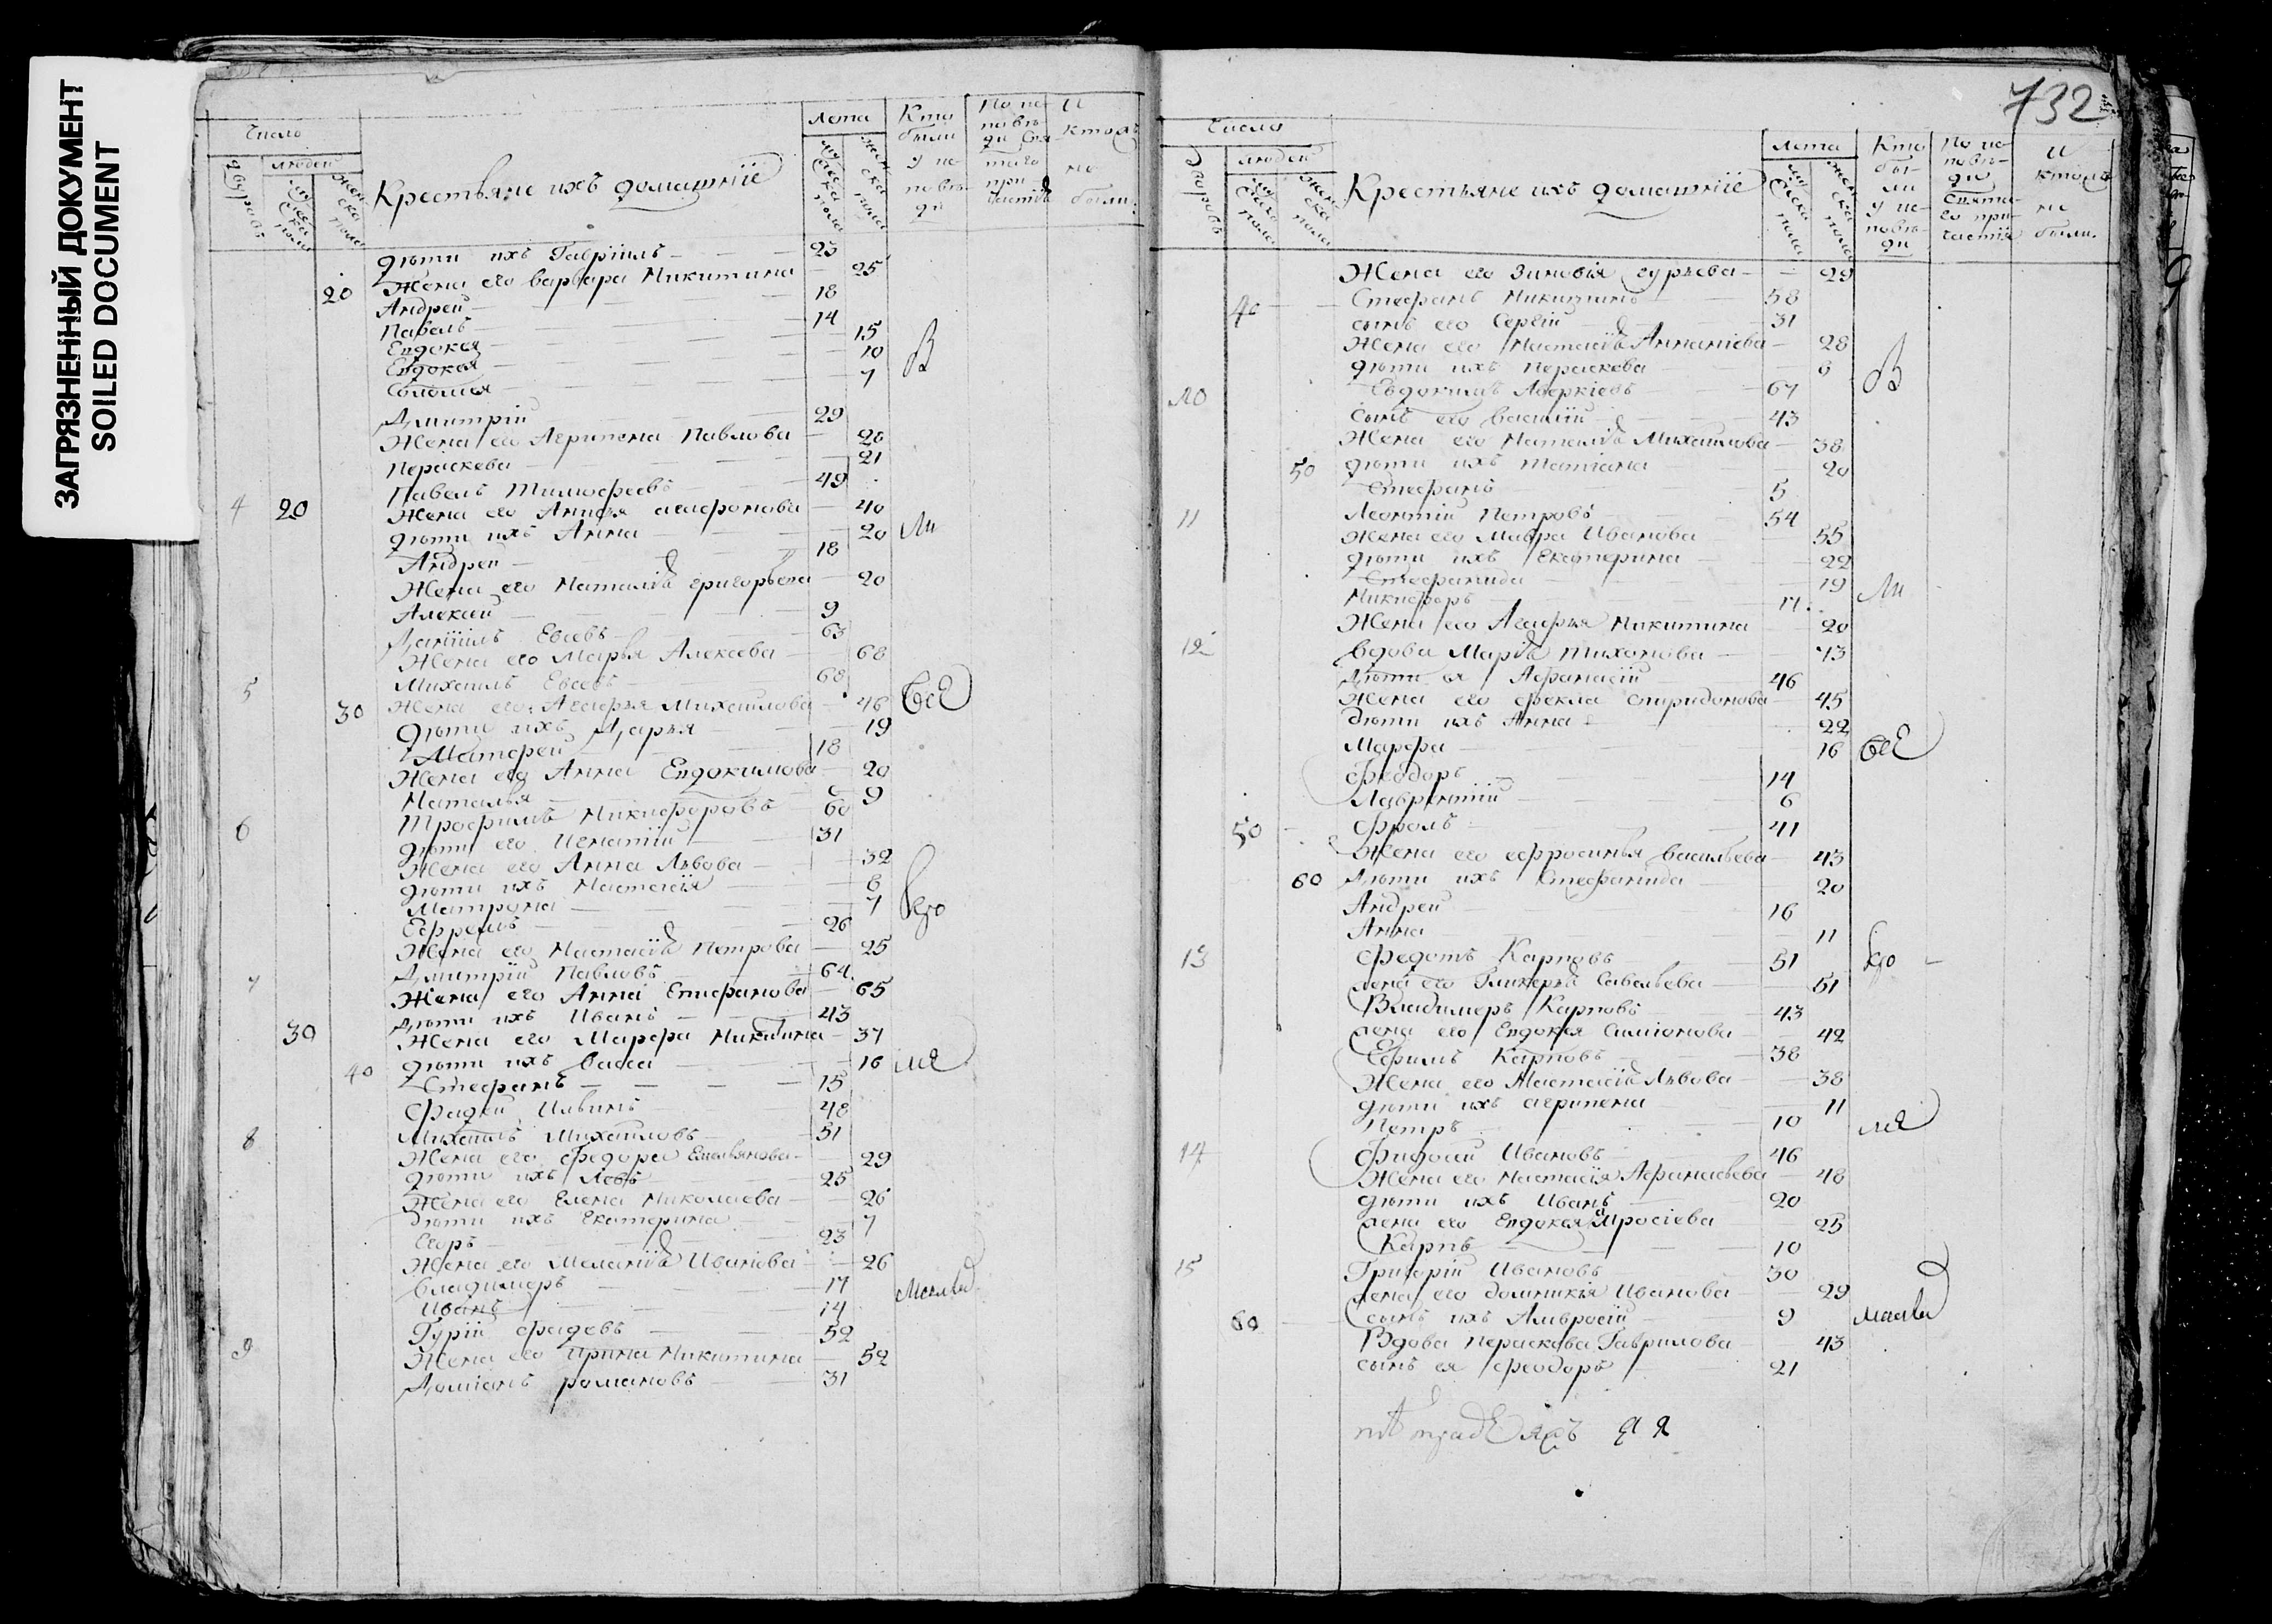 ЗАГРЯЗНЕННЫЙ ДОКУМЕНТ
SOILED DOCUMENT
Число
Дворовъ
людей
мужеска пола
женска пола
Крестьяне ихъ домашнїе
Лета
мужеска пола
женска пола
Кто были у исповѣди
По исповѣди Святаго причастїя
И ктожъ не были
дѣти ихъ Гавріилъ 23
Жена его варвара Никитина 25
20 Андрей 18
Павелъ 14
Евдокея 15
Евдокея 10
Соломея 7
Дмитрій 29
Жена его Агрипена Павлова 26
Пераскева 21
Павелъ Тимофеевъ 49
4 20 Жена его Анисья агафонова 40
дѣти ихъ Анна 20
Андрей 18
Жена его Наталїя григорьева 20
Алексий 9
Данїилъ Евсевъ 63
Жена его Марья Алексева 68
5 Михаилъ Евсевъ 68
30 Жена его Агафья Михаилова 48
дѣти ихъ Дарья 19
Матфей 18
Жена его Анна Евдокимова 20
Наталья 9
6 Трофимъ Никифоровъ 60
дѣти его Игнатїй 31
Жена его Анна Львова 32
дѣти ихъ Настасїя 8
Матрона 7
Ефремъ 26
Жена его Настасїя Петрова 25
7 Дмитрїй Павловъ 64
Жена его Анна Епифанова 65
дѣти ихъ Иванъ 43
30 Жена его Марфа Никитина 37
40 дѣти ихъ васса 16
Стефанъ 15
Фадѣй Ильинъ 48
8 Михаилъ Михаиловъ 51
Жена его Федора Емельянова 29
дѣти ихъ Левъ 25
Жена его Елена Николаева 26
дѣти ихъ Екатерина 7
Егоръ 23
Жена его Меланїя Иванова 26
Владимеръ 17
Иванъ 14
Гурїй Фадевъ 52
9 Жена его Ирина Никитина 52
Домианъ романовъ 31
732
Числа
Дворовъ
людей
мужеска пола
женска пола
Крестьяне ихъ домашнїе
Лета
мужеска пола
женска пола
Кто были у исповѣди
По исповѣди Святаго причастїя
И ктожъ не были.
Жена его Зиновїя гурьева 29
40 Стефанъ Никитинъ 58
сынъ его Сергїй 31
Жена его Настасїя Ананїева 28
дѣти ихъ Пераскева 8
10 Евдокимъ Аверкїевъ 67
Сынъ его василїй 43
Жена его Наталїя Михаилова 38
50 дѣти ихъ Татїана 20
Стефанъ 5
11 Леонтїй Петровъ 54
Жена его Мавра Иванова 55
дѣти ихъ Екатерина 22
Стефанида 19
Никифоръ 17
Жена его Агафья Никитина 20
12 вдова Марїя Тихонова 73
дѣти ея Афанасїй 46
Жена его фекла Спиридонова 45
дѣти ихъ Анна 22
Марфа 16
Феодоръ 14
Лаврентїй 6
50 Фролъ 41
Жена его ефросинья васильева 43
60 дѣти ихъ Стефанида 20
Андрей 16
Анна 11
13 Федотъ Карповъ 51
жена его Гликерїя Савельева 51
Владимеръ Карповъ 43
жена его Евдокея Симионова 42
Ефимъ Карповъ 38
Жена его Настасїя Львова 38
дѣти ихъ агрипена 11
Петръ 10
14 Ивановъ 46
Жена его Настасїя Афанасьева 48
дѣти ихъ Иванъ 20
жена его Евдокея 25
Карпъ 10
15 Григорїй Ивановъ 30
жена его домникїя Иванова 29
60 сынъ ихъ Амвросїй 9
Вдова Пераскева Гаврилова 43
сынъ ея феодоръ 21